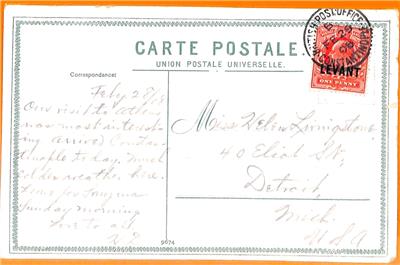 CARTE POSTALE
UNION POSTALE UNIVERSELLE.
BRITISH POST OFFICE
CONSTANTINOPLE
LEVANT
ONE PENNY
Correspondance:
Feby 28/08
Our visit to Athens
was most interesting
arrived Constan-
tinople today. Much
colder weather here.
Leave for Smyrna
Sunday morning
Love to all
Miss Helen Livingstone
40 Eliot St,
Detroit,
Mich.
U S A
9074